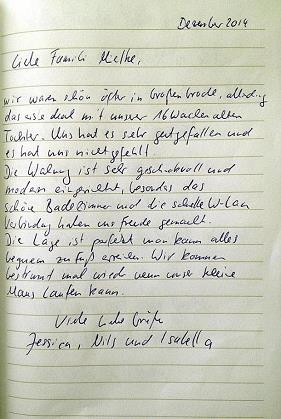 Dezember 2014
Liebe Familie Mielke,
wir waren schon öfter in Großenbrode, allerdings
das erste Mal mit unser 16 Wochen alten
Tochter. Uns hat es sehr gut gefallen und
es hat uns nicht gefehlt.
Die Wohnung ist sehr geschmackvoll und
modern eingerichtet, besonders das
schöne Badezimmer und die schnelle W-Lan
Verbindung haben uns Freude gemacht.
Die Lage ist perfekt man kann alles
bequem zu Fuß erreichen. Wir kommen
bestimmt mal wieder wenn unser kleine
Maus laufen kann.
Viele liebe Grüße
Jessica, Nils und Isabella